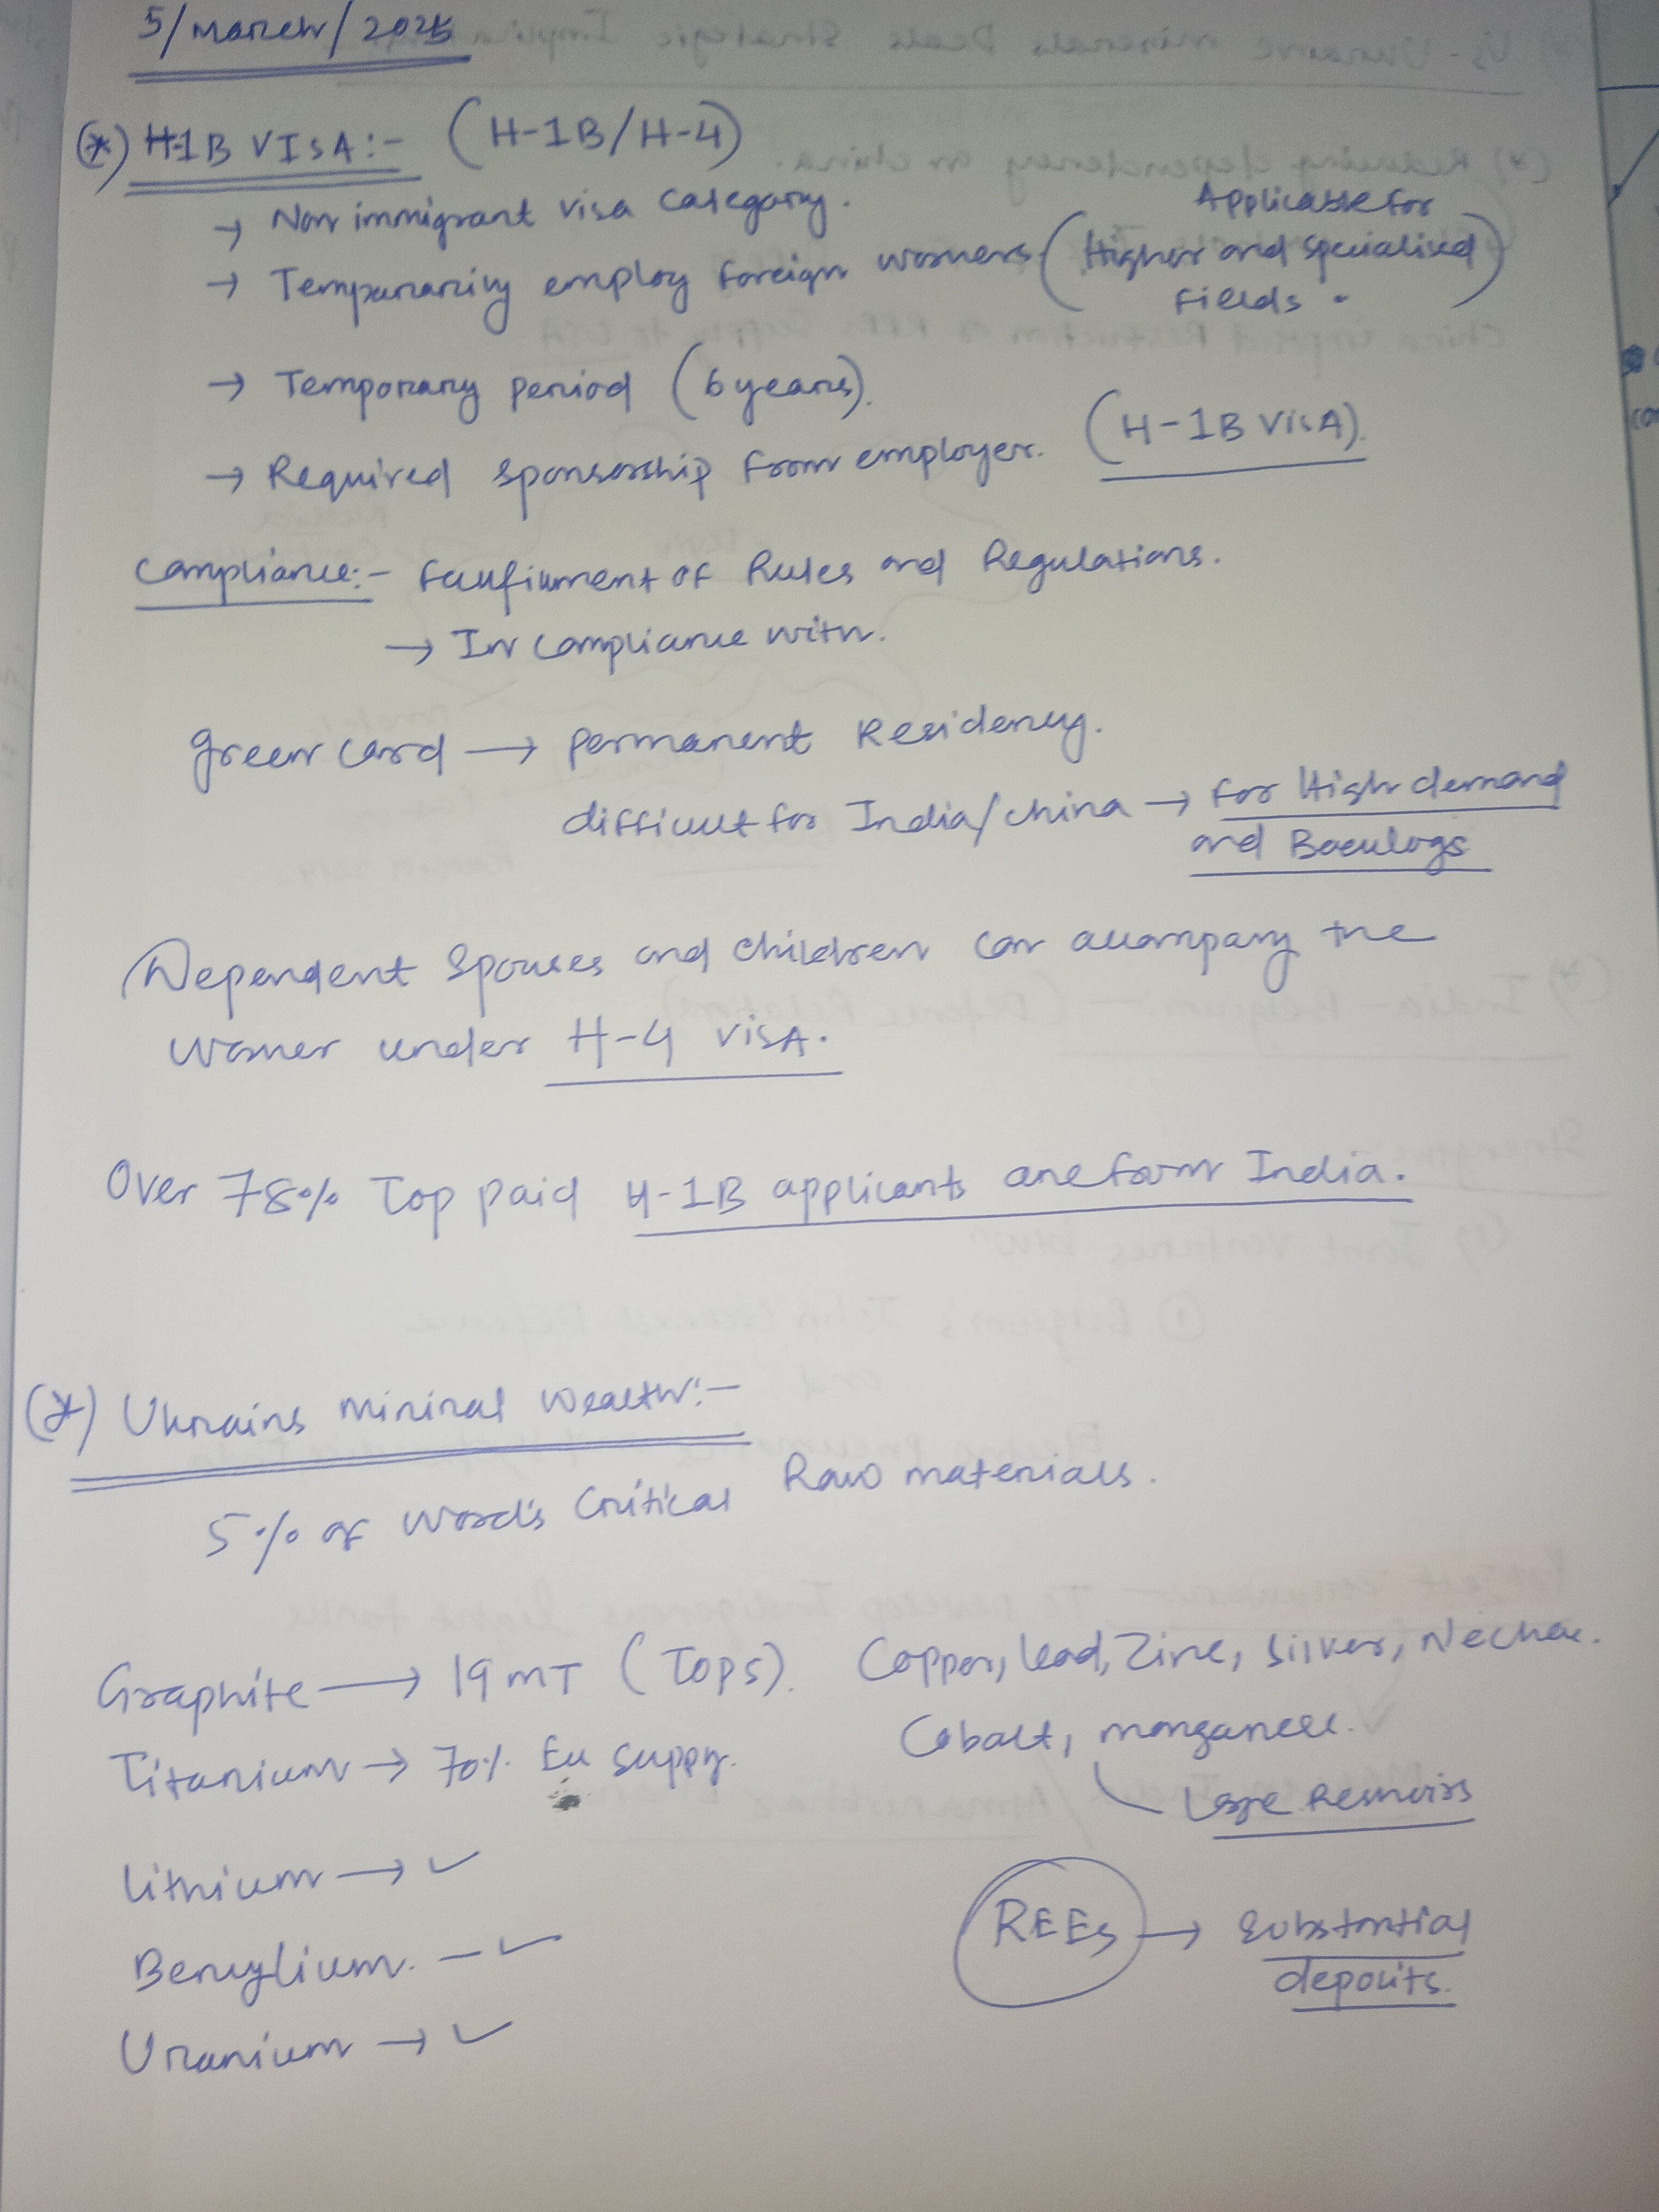 5/March/2025
(*) H1B VISA:- (H-1B/H-4)
→ Non immigrant visa category.
→ Temporarily employ foreign workers (Applicable for Higher and specialised fields.)
→ Temporary period (6 years).
→ Required sponsorship from employer. (H-1B VISA).
Compliance:- fulfilment of Rules and Regulations.
→ In compliance with.
Green card → permanent Residency.
difficult for India/China → for High demand
and Backlogs
Dependent Spouses and children can accompany the
worker under H-4 VISA.
Over 78% Top paid H-1B applicants are from India.
(*) Ukrains mininal wealth:-
5% of World's Critical Raw materials.
Graphite → 19 MT (Top 5).
Titanium → 70% Eu supply.
Lithium → ✓
Beryllium. - ✓
Uranium → ✓
Copper, lead, Zinc, silver,
Cobalt, manganese.
Large Reservoirs
REEs → Substantial
deposits.